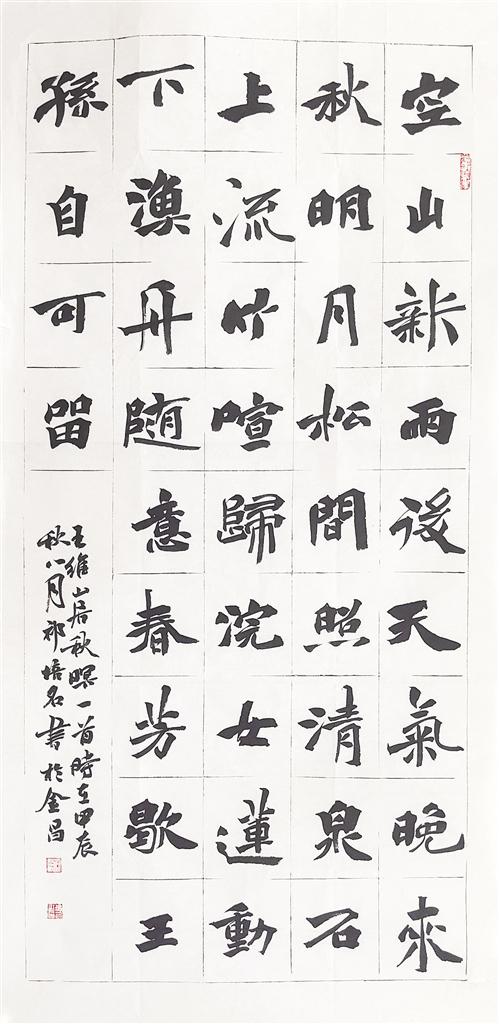 空山新雨後天氣晚來
秋明月松間照清泉石
上流竹喧歸浣女蓮動
下漁舟随意春芳歇王
孫自可留
王維山居秋暝一首時在甲辰
秋八月祁培名書於金昌